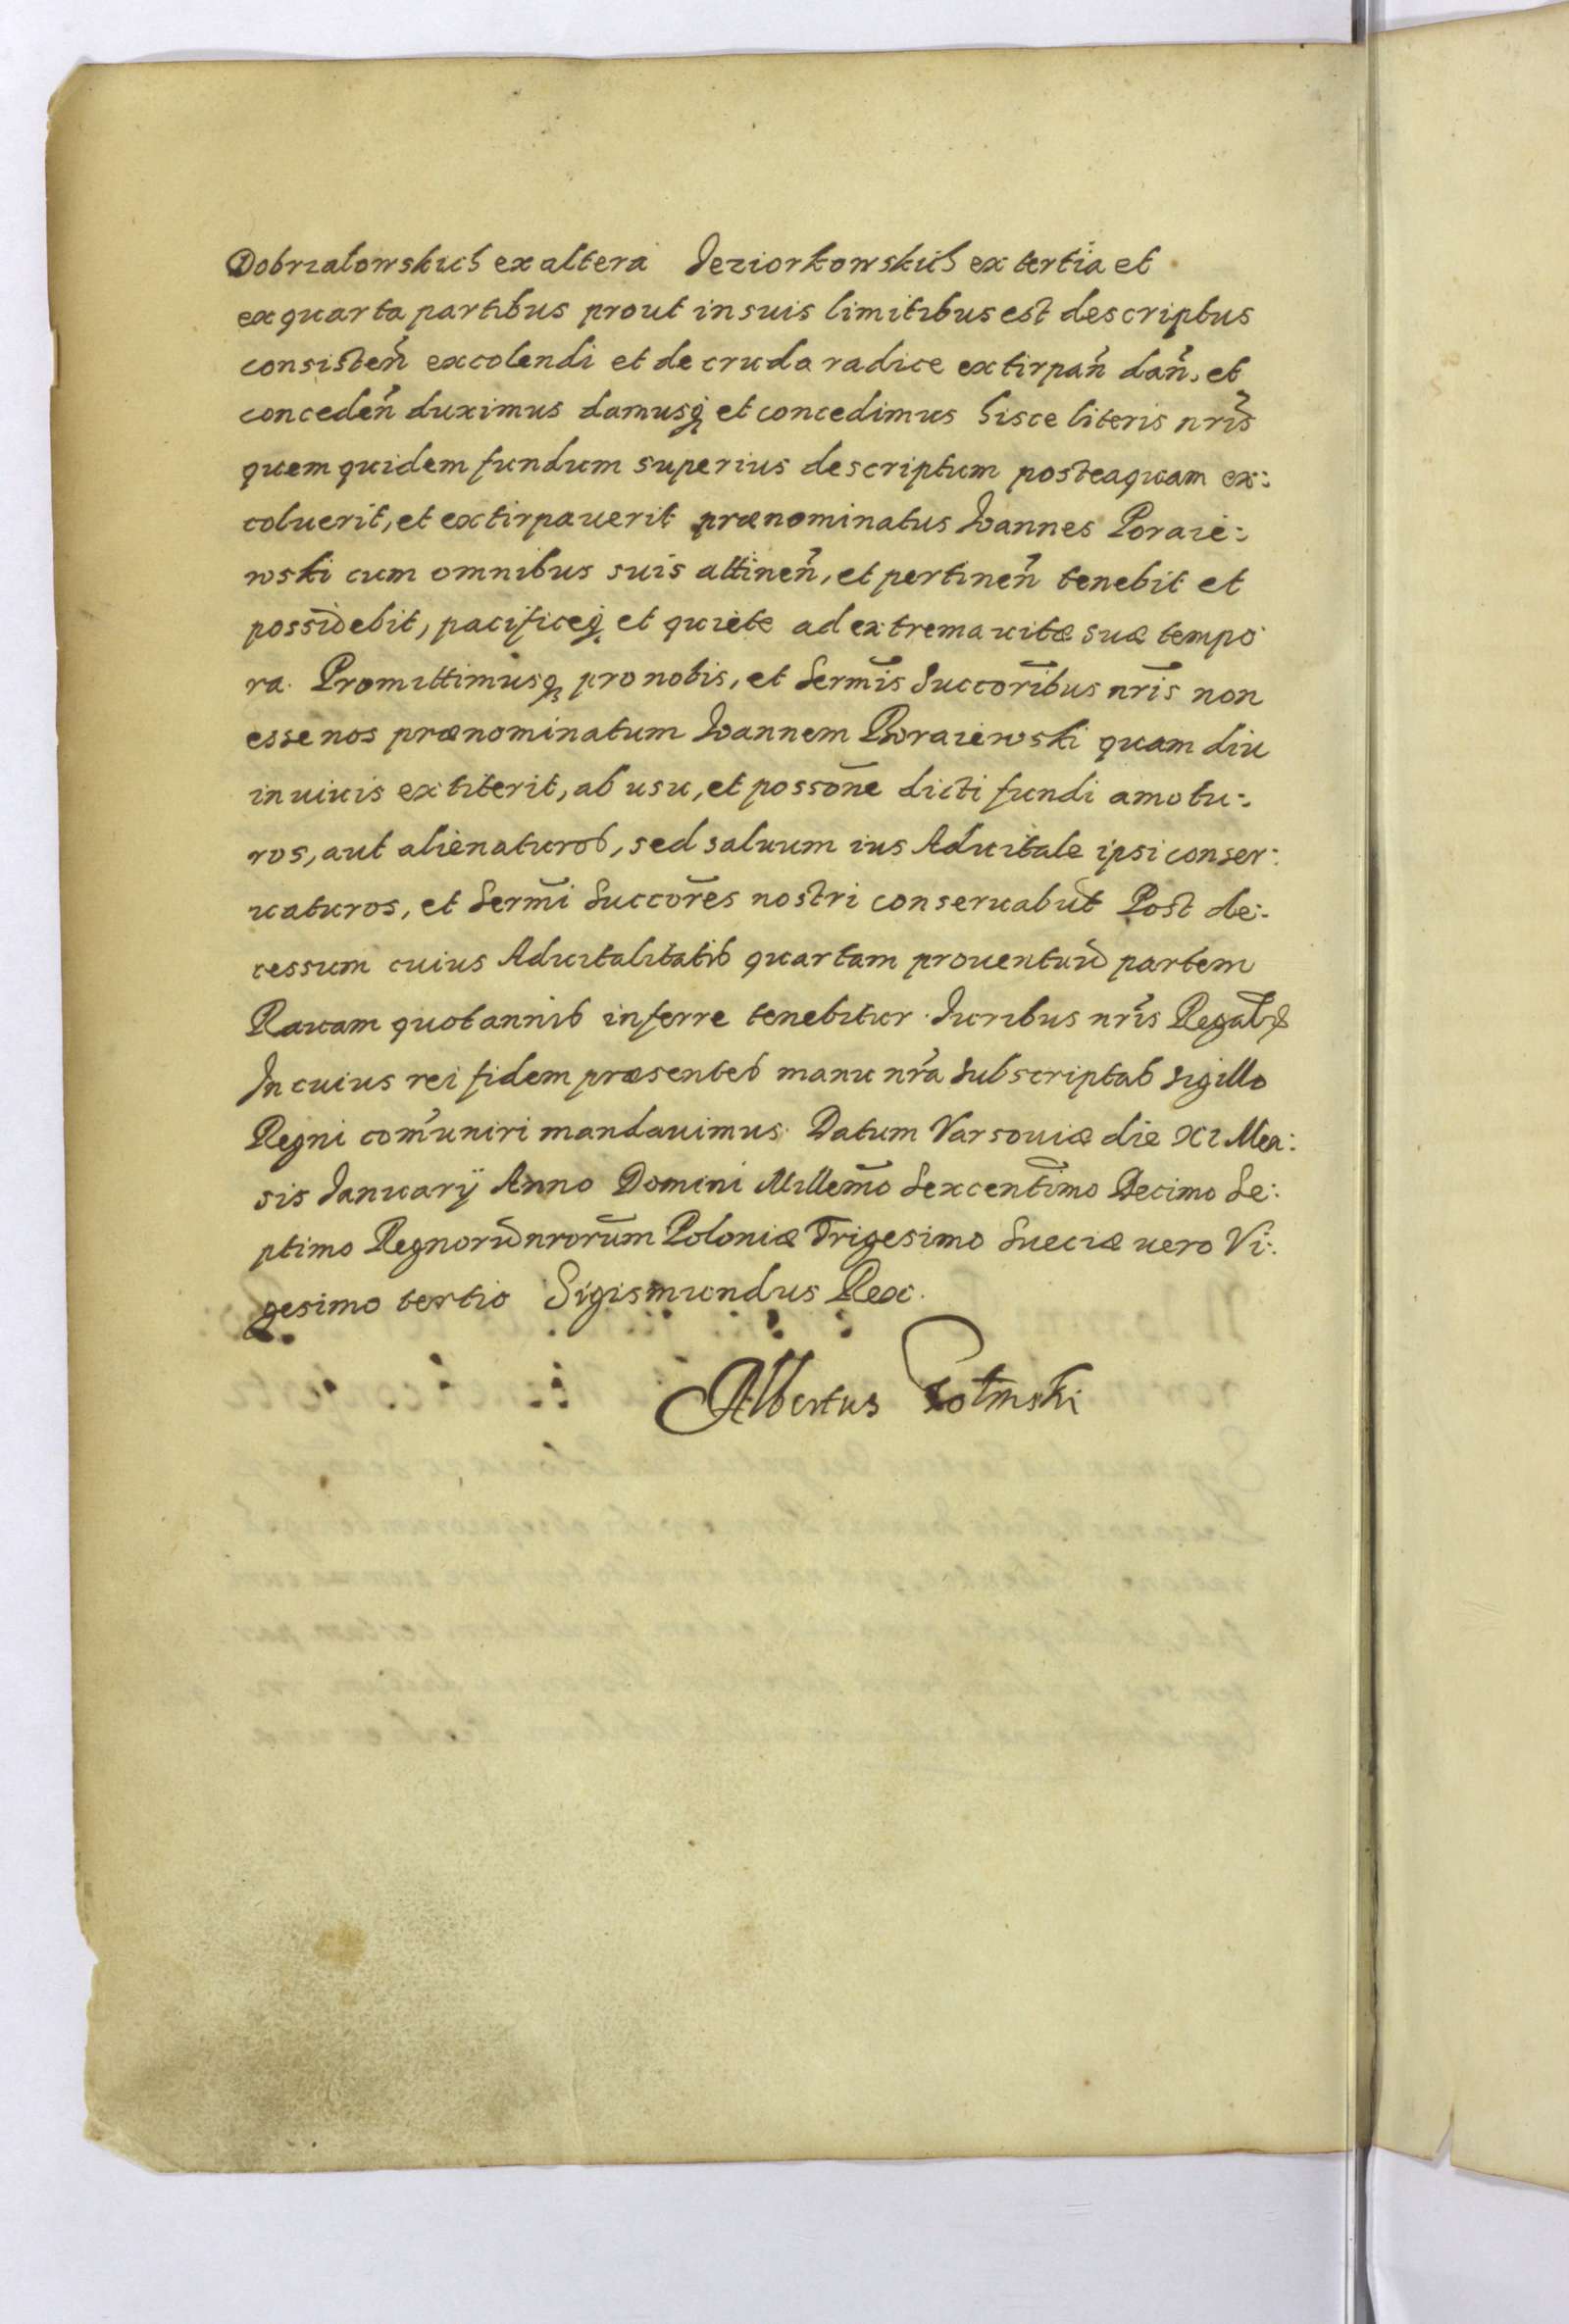 Dobrzalowskich ex altera Jeziorkowskich ex tertia et
ex quarta partibus prout in suis limitibus est descriptus
consisteñ excolendi et de cruda radice extirpañ dañ, et
concedeñ duximus damusq́ et concedimus hisce literis nr̃is
quem quidem fundum superius descriptum posteaquam ex:
coluerit, et extirpauerit prænominatus Ioannes Poraie:
wski cum omnibus suis attineñ, et pertineñ tenebit et
possidebit, pacificeq́ et quiete ad extrema uitæ suæ tempo
ra. Promittimusq́ pro nobis, et Serm̃is Succor̃ibus nr̃is non
esse nos prænominatum Ioannem Poraiewski quam diu
in uiuis extiterit, ab usu, et possõne dicti fundi amotu:
ros, aut alienaturos, sed saluum ius Aduitale ipsi conser:
uaturos, et Serm̃i Succor̃es nostri conseruabũt Post de:
cessum cuius Aduitalitatis quartam prouentuũ partem
Rauam quotannis inferre tenebitur. Iuribus nr̃is Regal̃
In cuius rei fidem præsentes manu nr̃a subscriptas sigillo
Regni com̃uniri mandauimus. Datum Varsouiæ die XI Men:
sis Ianuarÿ Anno Domini Millem̃o Sexcentim̃o Decimo Se:
ptimo Regnorũ nrorũm Poloniæ Trigesimo Sueciæ uero Vi:
gesimo tertio Sigismundus Rex.
Albertus